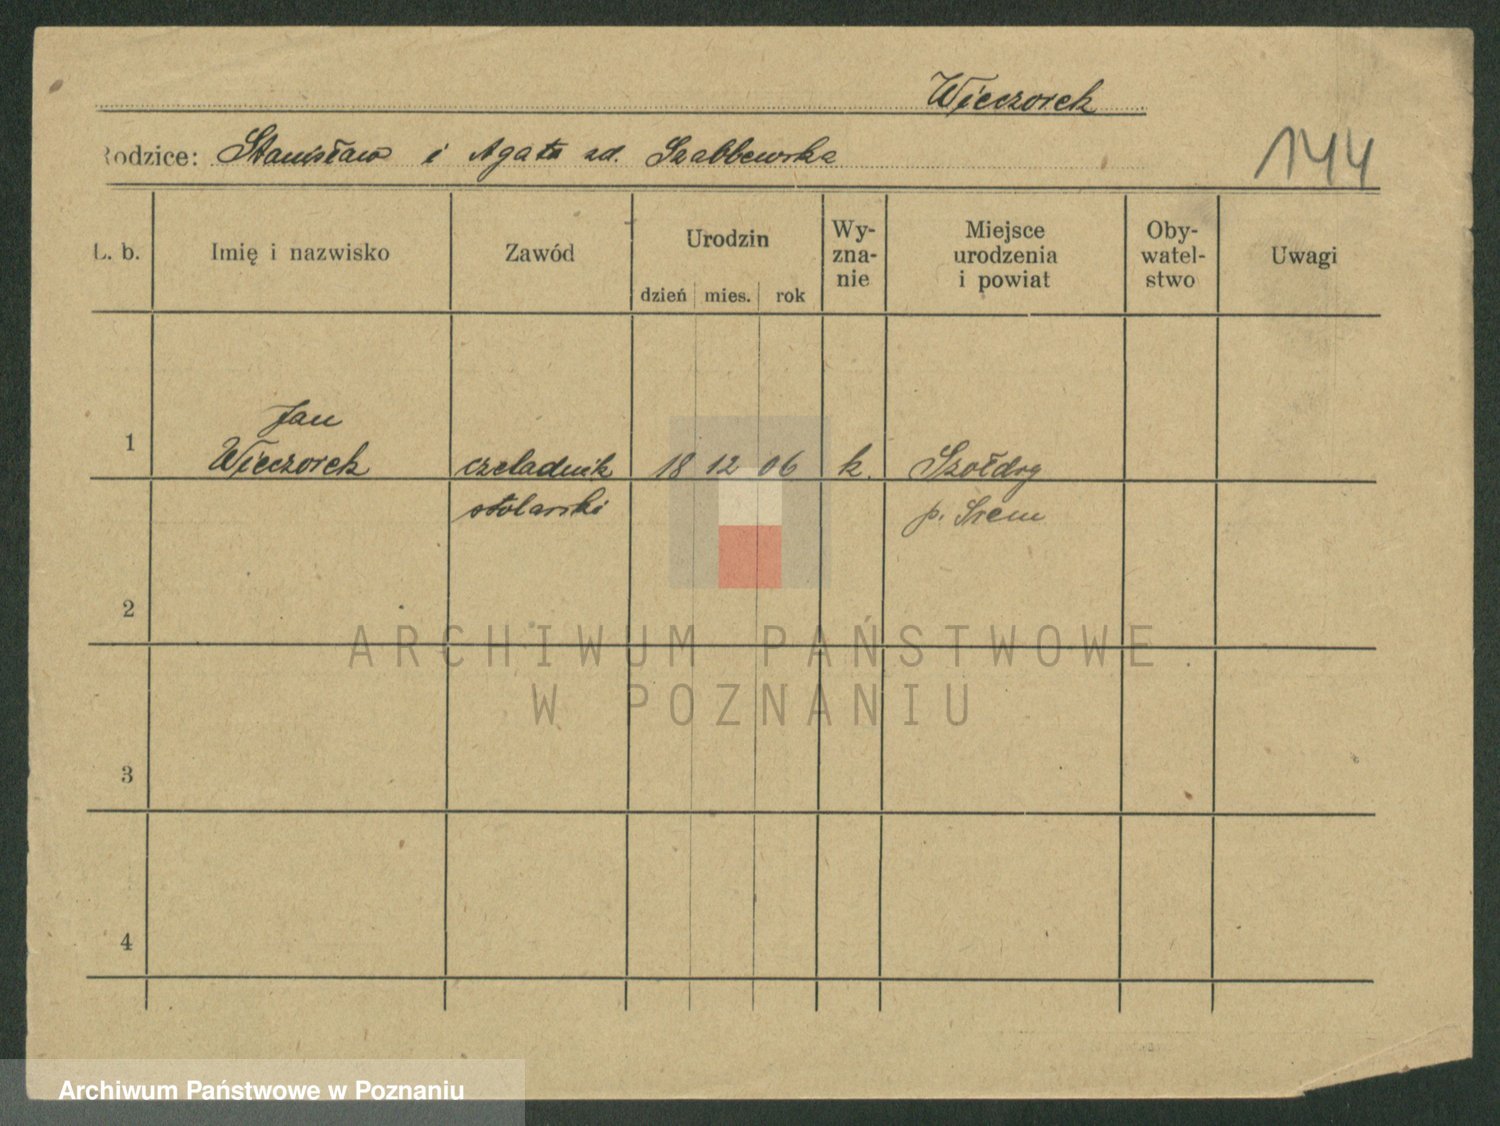 Wieczorek
Rodzice: Stanisław i Agata zd.
144
L. b. Imię i nazwisko Zawód Urodzin dzień mies. rok Wy-zna-nie Miejsce urodzenia i powiat Oby-watel-stwo Uwagi
Jan
1 Wieczorek czeladnik 18 12 06 k. Szołdry
stolarski p. Śrem
2
ARCHIWUM PAŃSTWOWE
W POZNANIU
3
4
Archiwum Państwowe w Poznaniu